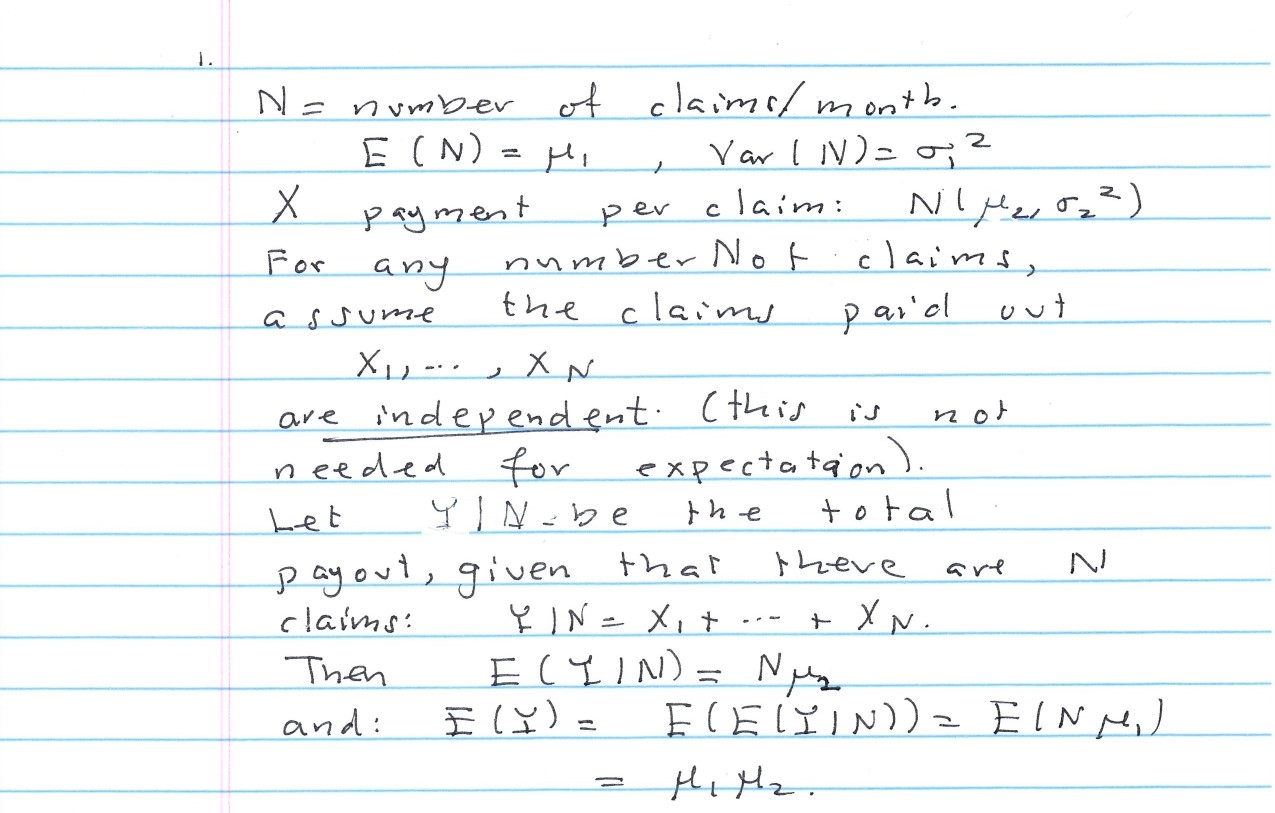 1.
N = number of claims/month.
E(N) = μ₁, Var(N) = σ₁²
X payment per claim: N(μ₂, σ₂²)
For any number N of claims,
assume the claims paid out
X₁, ..., X_N
are independent. (this is not
needed for expectation).
Let Y|N be the total
payout, given that there are N
claims: Y|N = X₁ + ... + X_N.
Then E(Y|N) = Nμ₂
and: E(Y) = E(E(Y|N)) = E(Nμ₁)
= μ₁μ₂.